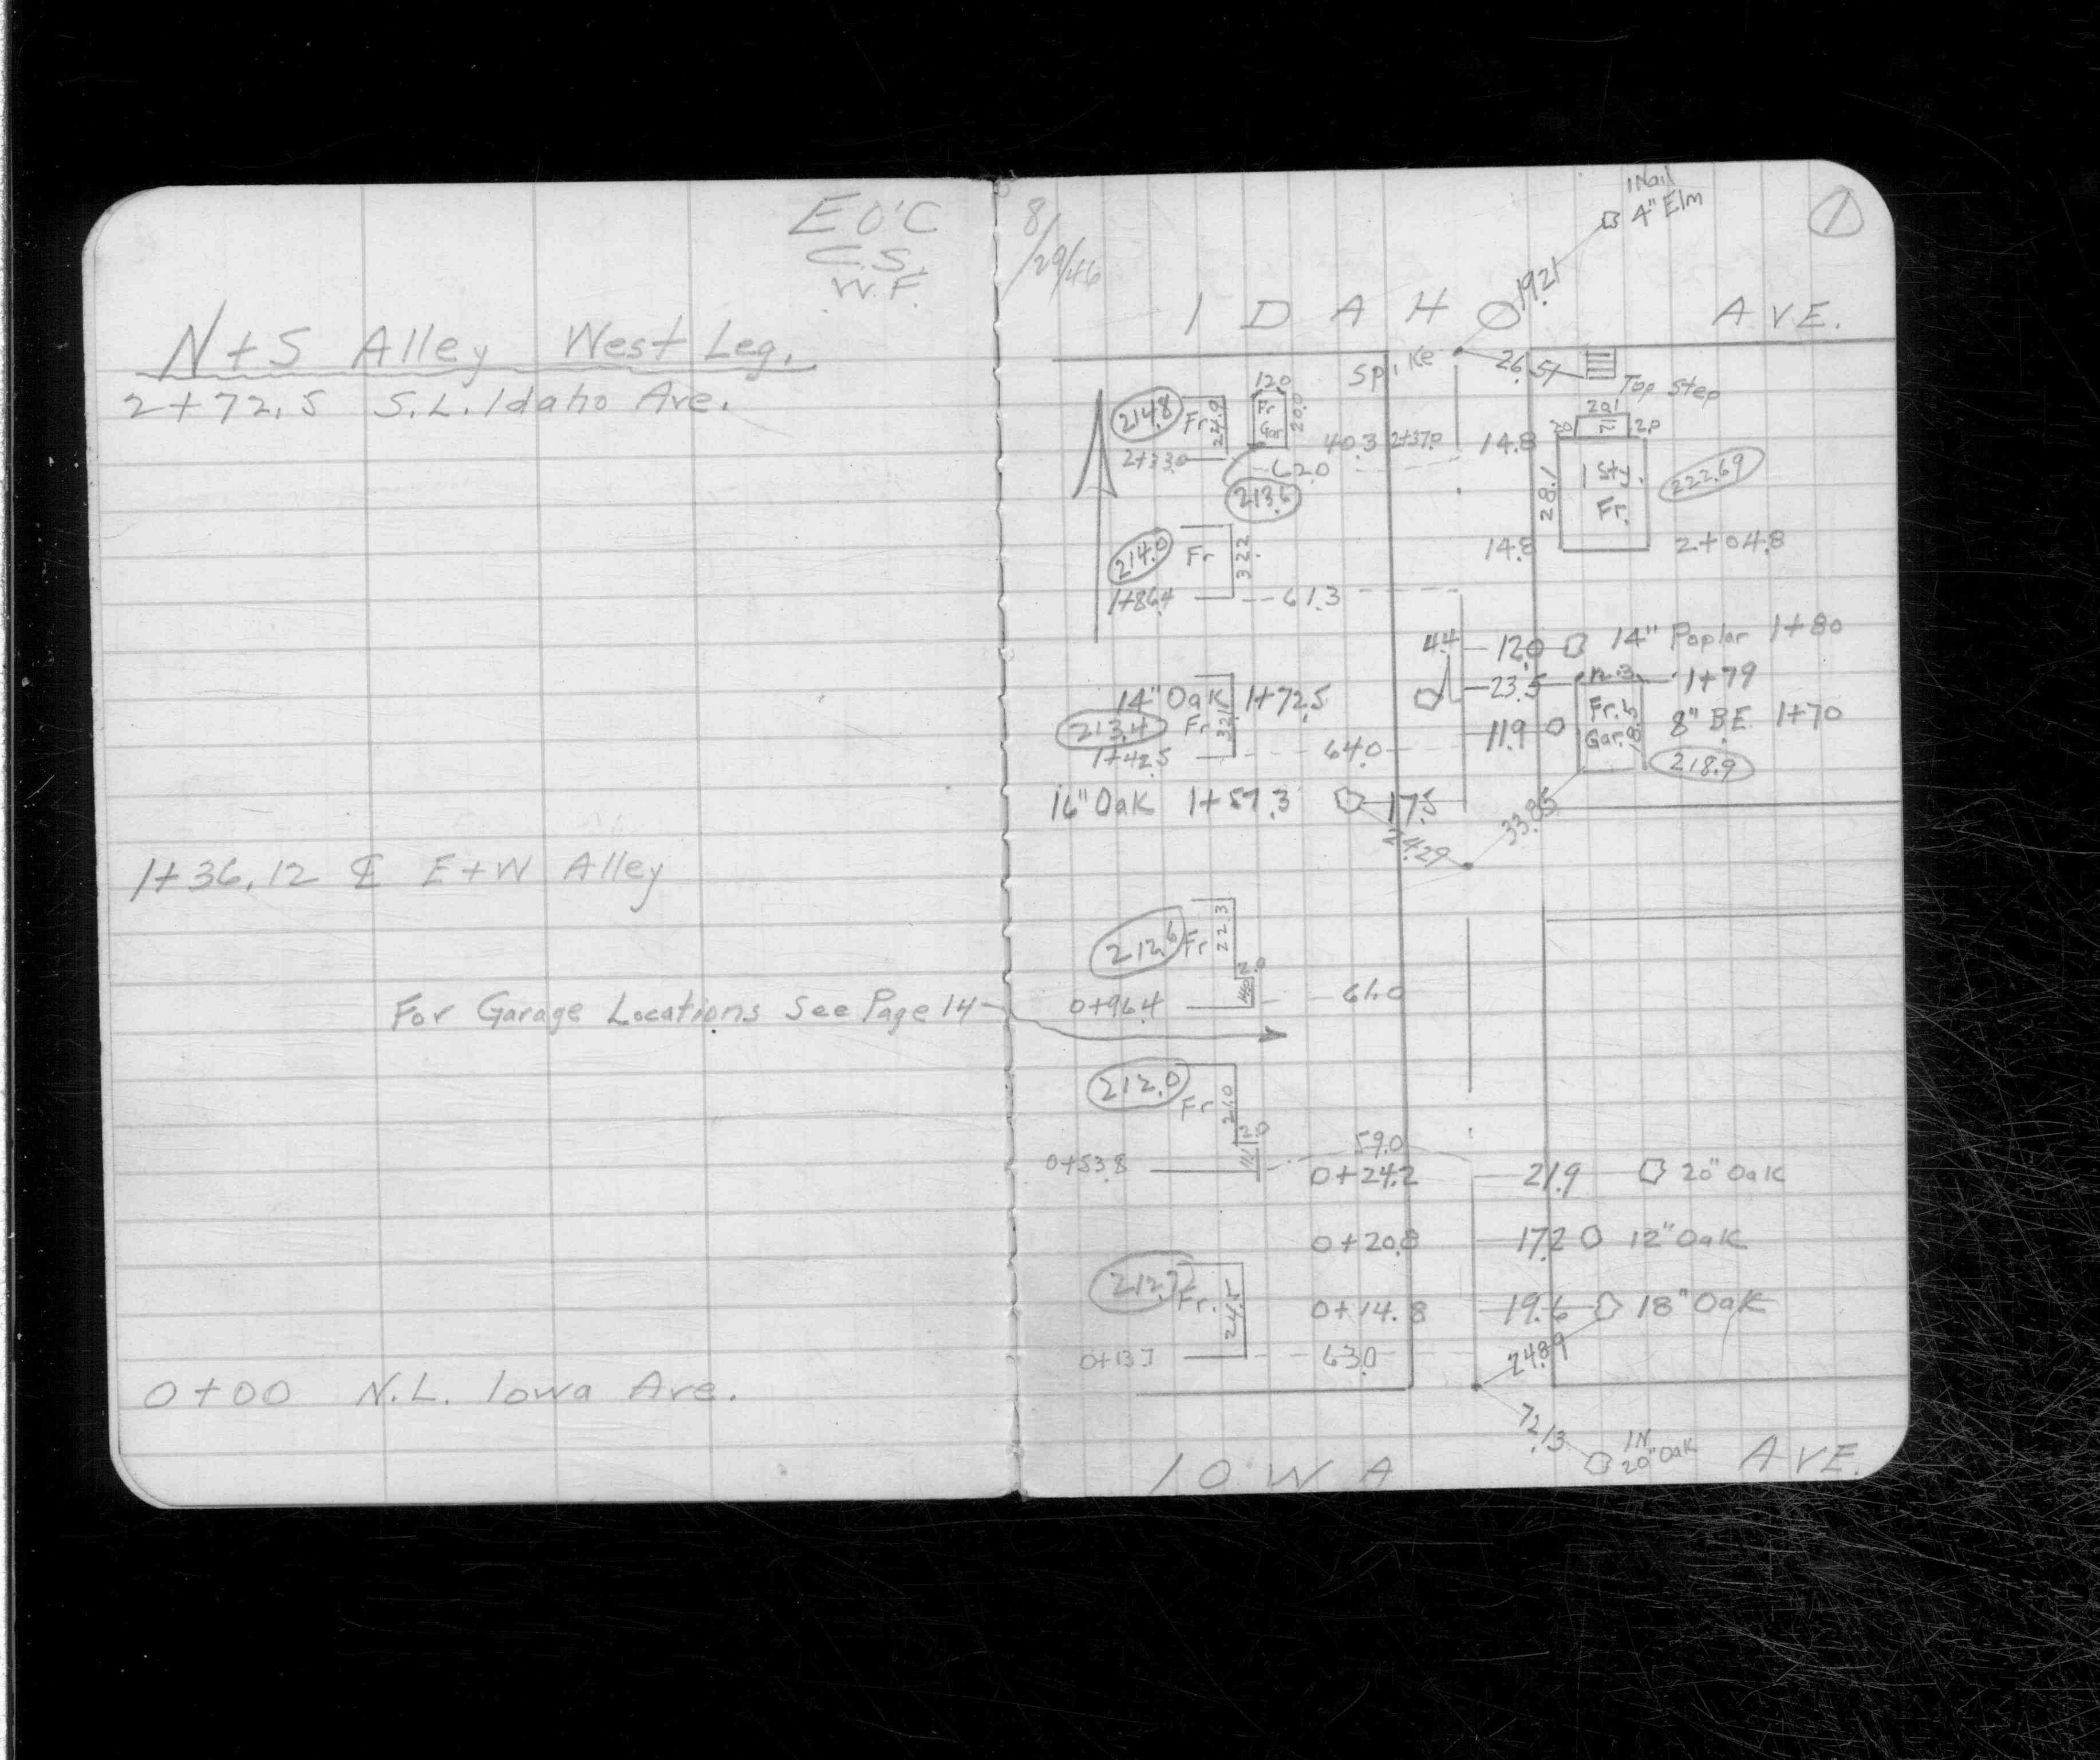 E O'C
C.S.
W.F.
N+S Alley West Leg.
2+72.5 S.L. Idaho Ave.
1+36.12 ℄ E+W Alley
For Garage Locations See Page 14
0+00 N.L. Iowa Ave.
8/29/46
1
1 Nail
4" Elm
19.21
IDAHO AVE.
Spike
26.51
Top Step
214.8 Fr 24.9
12.0
Fr Gar 20.0
40.3 2+37.0 14.8
20.1
2.0
2+33.0
62.0
213.5
28.1
1 Sty.
Fr.
222.69
214.0 Fr 32.2
14.8
2+04.8
1+86.4 61.3
4.4 12.0 14" Poplar 1+80
23.5 12.3 1+79
14" Oak 1+72.5
213.4 Fr 32.1
11.9 Fr. Gar. 18.5 8" B.E. 1+70
218.9
1+42.5 64.0
16" Oak 1+57.3 17.5
24.29
33.85
212.6 Fr 22.3
2.0
0+96.4 61.0
212.0 Fr 21.0
2.0
59.0
0+53.8
0+24.2 21.9 20" Oak
0+20.8 17.2 12" Oak
Fr. 24.5
0+14.8 19.6 18" Oak
0+13.7 63.0
24.89
72.13
1N
20" Oak
IOWA AVE.